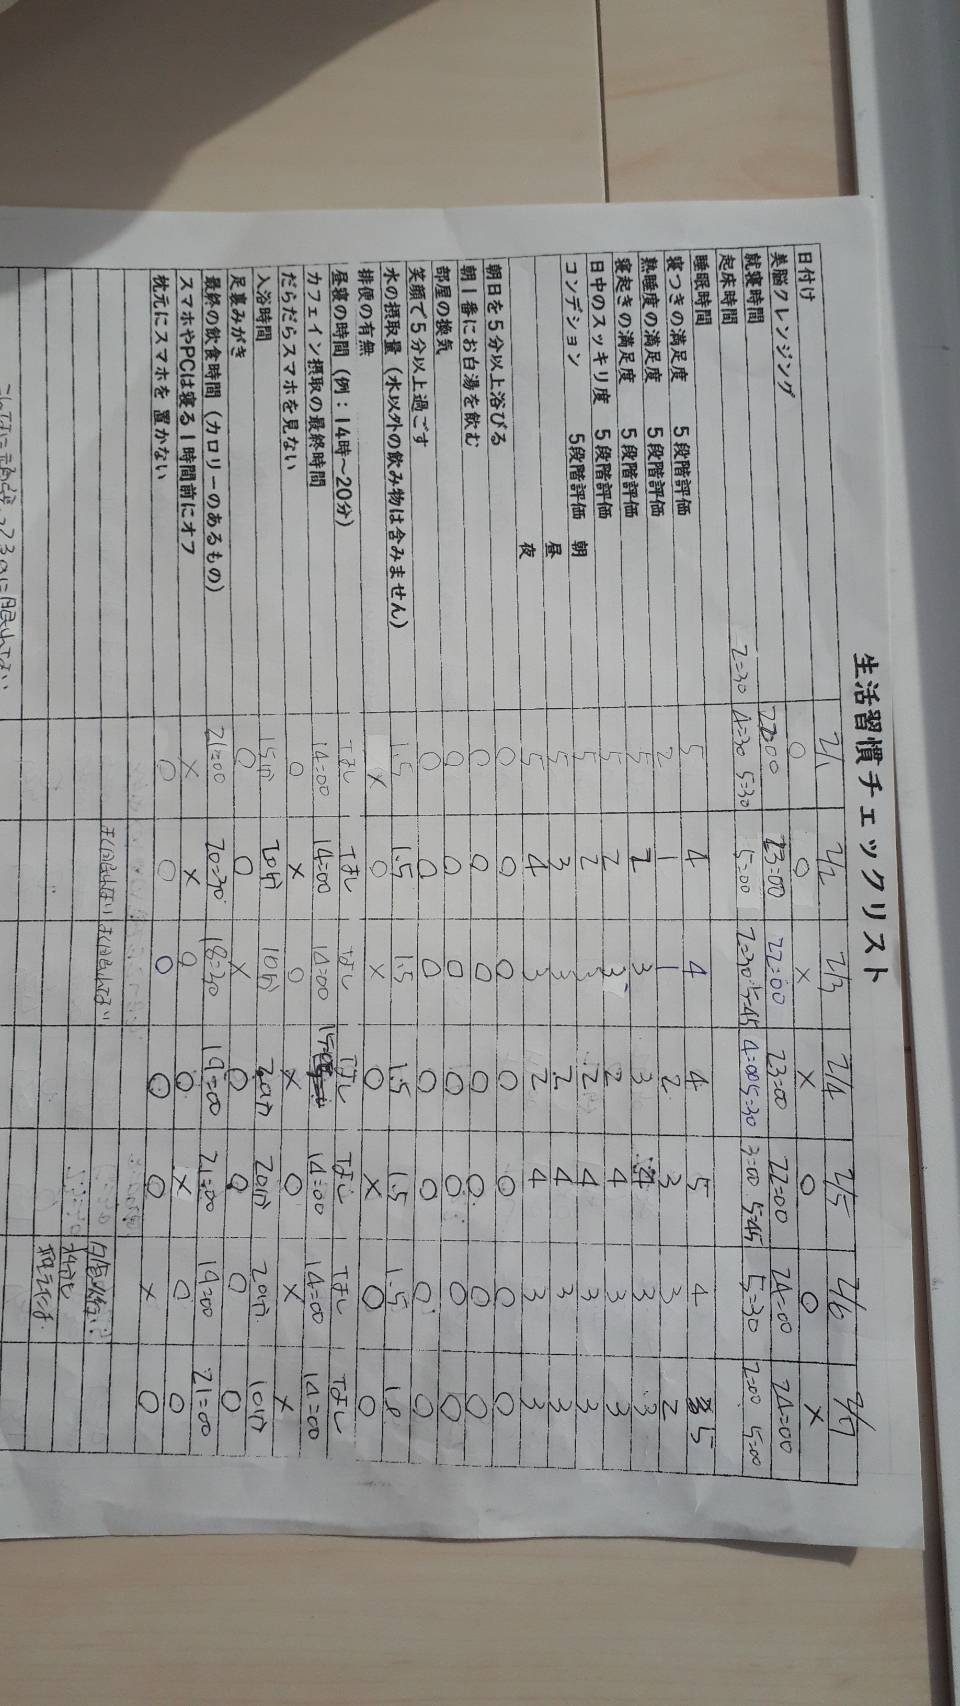 生活習慣チェックリスト
日付け 2/1 2/2 2/3 2/4 2/5 2/6 2/7
美脳クレンジング ○ ○ × × ○ ○ ×
就寝時間 22:00 23:00 22:00 23:00 22:00 24:00 24:00
起床時間 2:30 4:30 5:30 5:00 2:30 5:45 4:00 5:30 3:00 5:45 5:30 2:00 5:00
睡眠時間
寝つきの満足度 5段階評価 5 4 4 4 5 4 5
熟睡度の満足度 5段階評価 2 1 1 2 3 3 2
寝起きの満足度 5段階評価 5 2 3 3 4 3 3
日中のスッキリ度 5段階評価 5 2 3 2 4 3 3
コンデション 5段階評価 朝 5 2 3 2 4 3 3
昼 5 3 3 2 4 3 3
夜 5 4 3 2 4 3 3
朝日を5分以上浴びる ○ ○ ○ ○ ○ ○ ○
朝1番にお白湯を飲む ○ ○ ○ ○ ○ ○ ○
部屋の換気 ○ ○ ○ ○ ○ ○ ○
笑顔で5分以上過ごす ○ ○ ○ ○ ○ ○ ○
水の摂取量（水以外の飲み物は含みません） 1.5 1.5 1.5 1.5 1.5 1.5
排便の有無 × ○ × ○ × ○ ○
昼寝の時間（例：14時～20分） なし なし なし なし なし なし なし
カフェイン摂取の最終時間 14:00 14:00 14:00 14:00 14:00 14:00
だらだらスマホを見ない ○ × ○ × ○ × ×
入浴時間 15分 20分 10分 20分 20分 20分 10分
足裏みがき ○ ○ × ○ ○ ○ ○
最終の飲食時間（カロリーのあるもの） 21:00 20:30 18:30 19:00 21:00 19:00 21:00
スマホやPCは寝る1時間前にオフ × × ○ ○ × ○ ○
枕元にスマホを 置かない ○ ○ ○ ○ ○ × ○